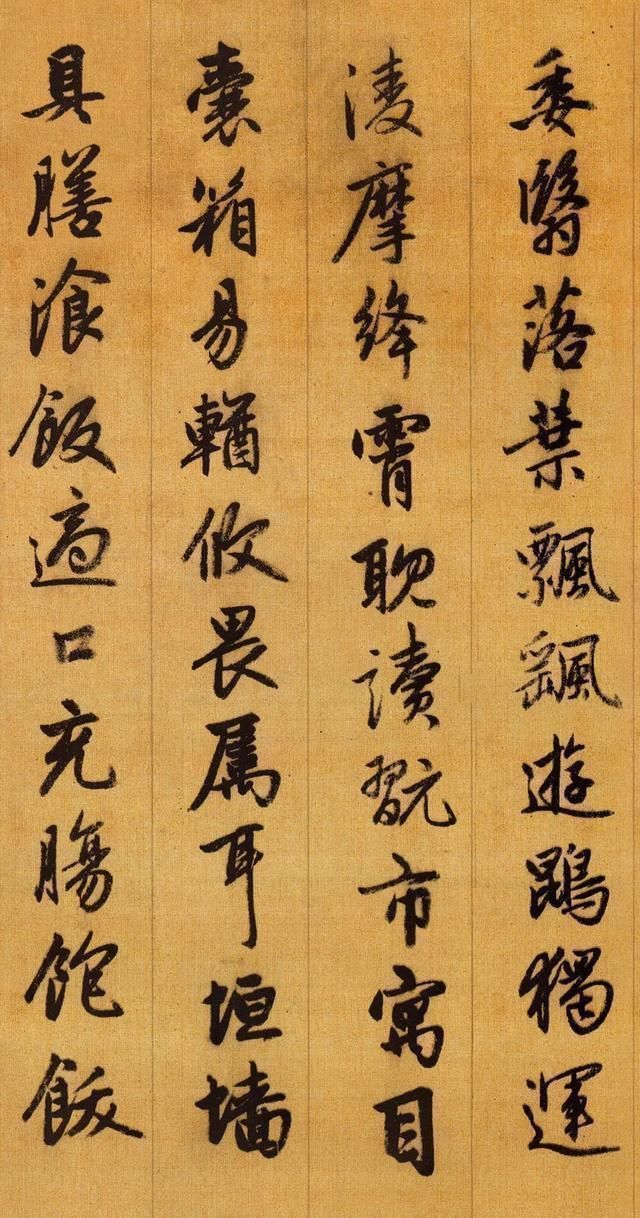 委翳落葉飄飄遊鵾獨運
凌摩絳霄耽讀翫市寓目
囊箱易輶攸畏属耳垣墻
具膳飡飯適口充腸飽飫